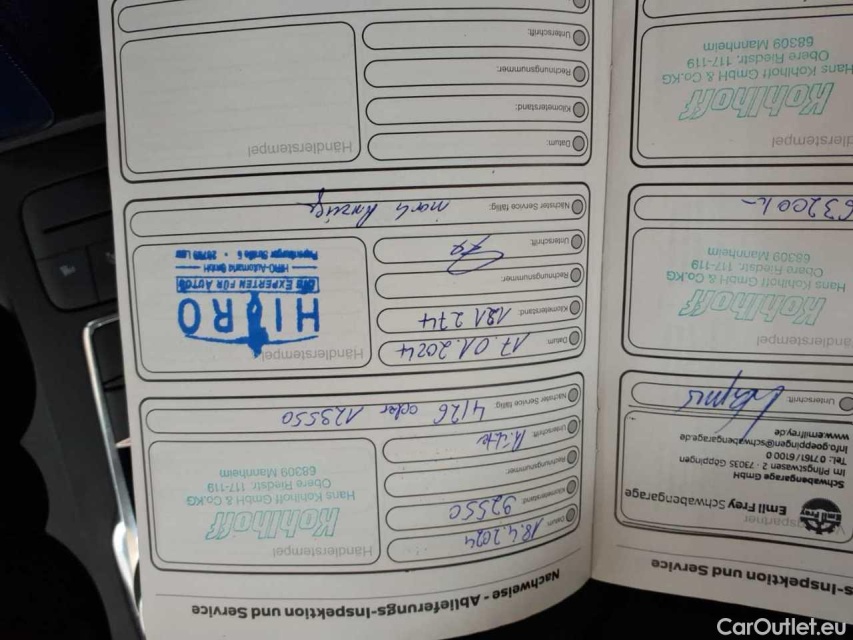 s-Inspektion und Service
spartner
Emil Frey
Emil Frey Schwabengarage
Schwabengarage GmbH
Im Pfingstwasen 2 · 73035 Göppingen
Tel: 07161/6100 0
info.goeppingen@schwabengarage.de
www.emilfrey.de
Unterschrift:
Händlerstempel
Kohlhoff
Hans Kohlhoff GmbH & Co.KG
Obere Riedstr. 117-119
68309 Mannheim
63200 k
Händlerstempel
Kohlhoff
Hans Kohlhoff GmbH & Co.KG
Obere Riedstr. 117-119
68309 Mannheim
Nachweise - Ablieferungs-Inspektion und Service
Datum: 18.4.2024
Kilometerstand: 92550
Rechnungsnummer:
Unterschrift:
Händlerstempel
Kohlhoff
Hans Kohlhoff GmbH & Co.KG
Obere Riedstr. 117-119
68309 Mannheim
Nächster Service fällig: 4/26 oder
Datum: 17.01.2024
Kilometerstand: 121 274
Rechnungsnummer:
Unterschrift:
Händlerstempel
HIRO
DIE EXPERTEN FÜR AUTOS
HIRO-Automarkt GmbH
Papenburger Straße 6 • 26789 Leer
Nächster Service fällig: nach Anzeige
Datum:
Kilometerstand:
Rechnungsnummer:
Unterschrift:
Händlerstempel
CarOutlet.eu